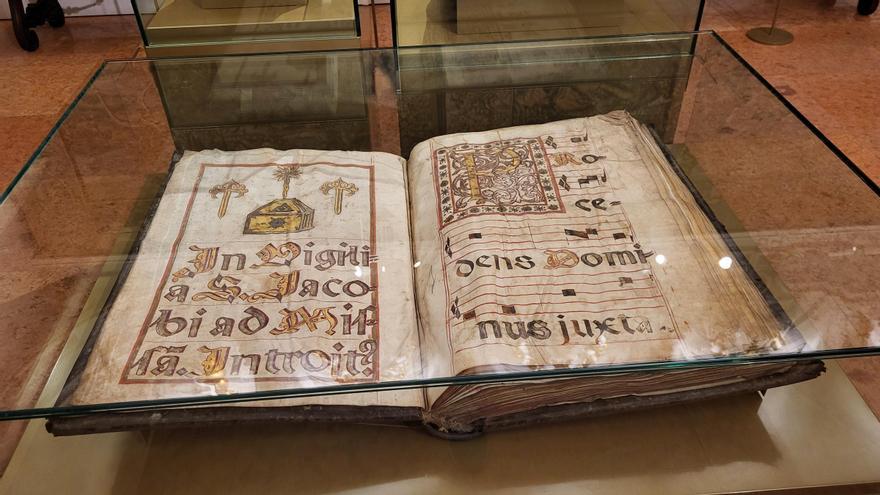 In Vigili-
a S. Iaco-
bi ad Miſ-
sā. Introitꝰ
P Ro
ce-
dens Domi
nus juxta